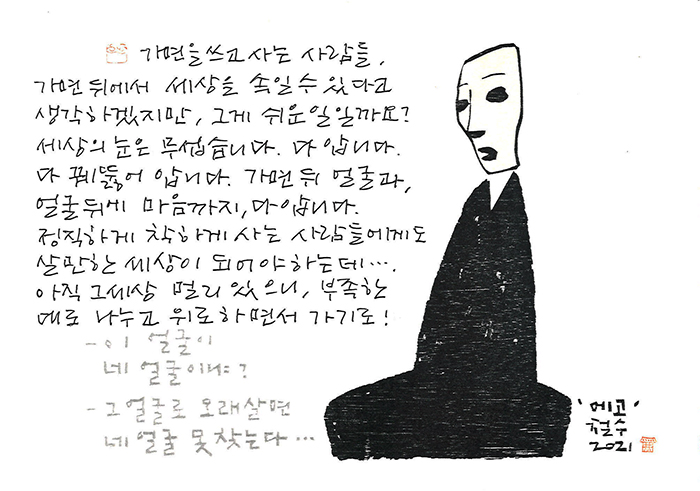 가면을쓰고 사는 사람들,
가면 뒤에서 세상을 속일 수 있다고
생각하겠지만, 그게 쉬운일일까요?
세상의 눈은 무섭습니다. 다 압니다.
다 꿰뚫어 압니다. 가면 뒤 얼굴과,
얼굴뒤에 마음까지, 다압니다.
정직하게 착하게 사는 사람들에게도
살만한 세상이 되어야하는데….
아직 그세상 멀리 있으니, 부족한
대로 나누고 위로하면서 가기로!
- 이 얼굴이
네 얼굴이냐?
- 그얼굴로 오래살면
네얼굴 못찾는다…
철수
2021